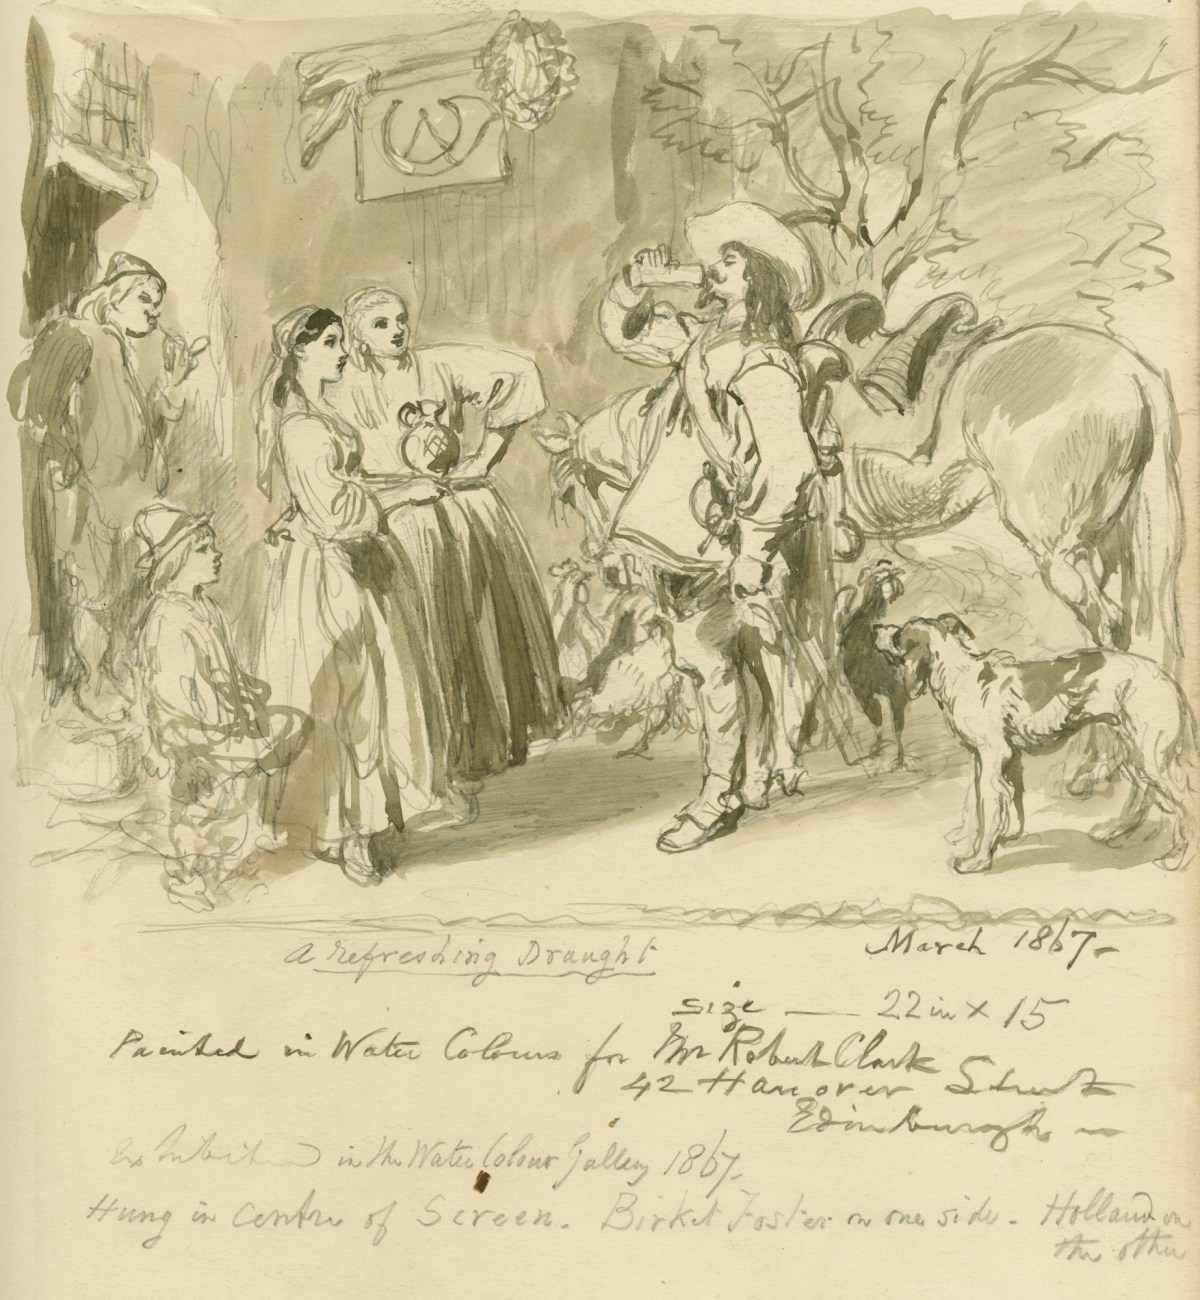 A Refreshing Draught
March 1867-
size — 22 in x 15
Painted in Water Colours for Mr Robert Clark
42 Hanover Street
Edinburgh —
Exhibited in the Water Colour Gallery 1867-
Hung in centre of Screen. Birket Foster on one side - Holland on
the other